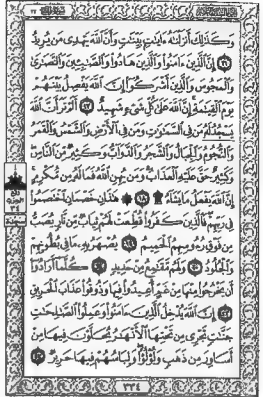 وكذلك أنزلناه ءايات بينات وأن الله يهدى من يريد
١٦ إن الذين ءامنوا والذين هادوا والصابئين والنصارى
والمجوس والذين أشركوا إن الله يفصل بينهم
يوم القيامة إن الله على كل شىء شهيد ١٧ ألم تر أن الله
يسجد له من فى السماوات ومن فى الأرض والشمس والقمر
والنجوم والجبال والشجر والدواب وكثير من الناس
وكثير حق عليه العذاب ومن يهن الله فما له من مكرم
إن الله يفعل ما يشاء ۩ ١٨ هذان خصمان اختصموا
فى ربهم فالذين كفروا قطعت لهم ثياب من نار يصب
من فوق رءوسهم الحميم ١٩ يصهر به ما فى بطونهم
والجلود ٢٠ ولهم مقامع من حديد ٢١ كلما أرادوا
أن يخرجوا منها من غم أعيدوا فيها وذوقوا عذاب الحريق
٢٢ إن الله يدخل الذين ءامنوا وعملوا الصالحات
جنات تجرى من تحتها الأنهار يحلون فيها من
أساور من ذهب ولؤلؤا ولباسهم فيها حرير ٢٣
٣٣٤